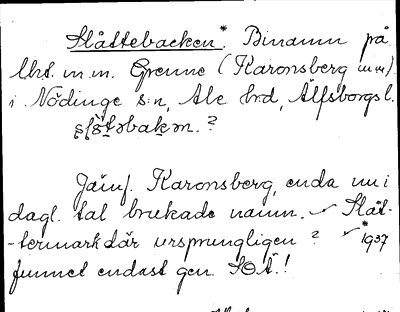 Slåttebacken*. Binamn på
lht. m.m. Grenne (Karonsberg m.m.)
i Nödinge s:n, Ale hrd, Älfsborgs l.
slåtəbakən.?
Jämf. Karonsberg, enda nu i
dagl. tal brukade namn. Slåt-
termark där ursprungligen? 1937
funnet endast gen. SOÄ.!